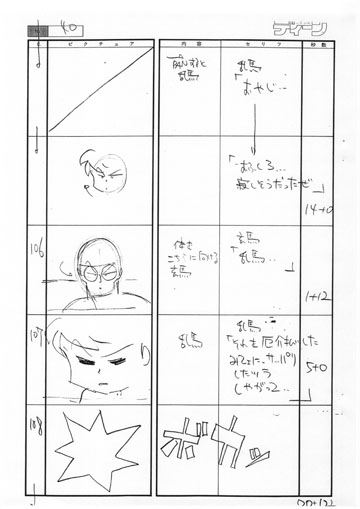 40
ディーン
C
ピクチュア
内容
セリフ
秒数
PANすると
乱馬
乱馬
「おやじ…
「おふくろ…
寂しそうだったぜ」
14+0
106
体を
こちらに向ける
玄馬
玄馬
「乱馬…」
1+12
107
乱馬
乱馬
「それを厄介払いした
みてェに、サッパリ
したツラ
しやがって…」
5+0
108
ボカッ